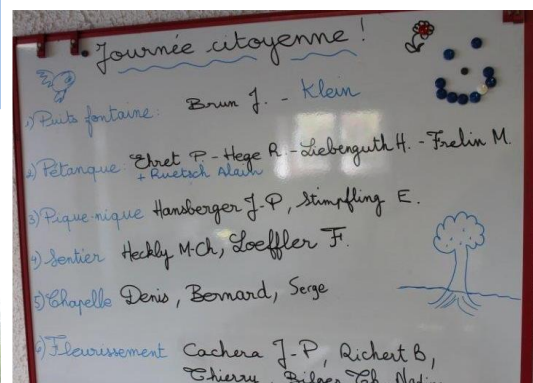 Journée citoyenne !
1) Puits fontaine : Brun J. - Klein
2) Pétanque : Ehret P. - Hege R. - Liebenguth H. - Frelin M.
+ Ruetsch Alain
3) Pique-nique Hansberger J-P, Stimpfling E.
4) Sentier Heckly M-Ch, Loeffler F.
5) Chapelle Denis, Bernard, Serge
6) Fleurissement Cachera J-P, Richert B,
Thierry,